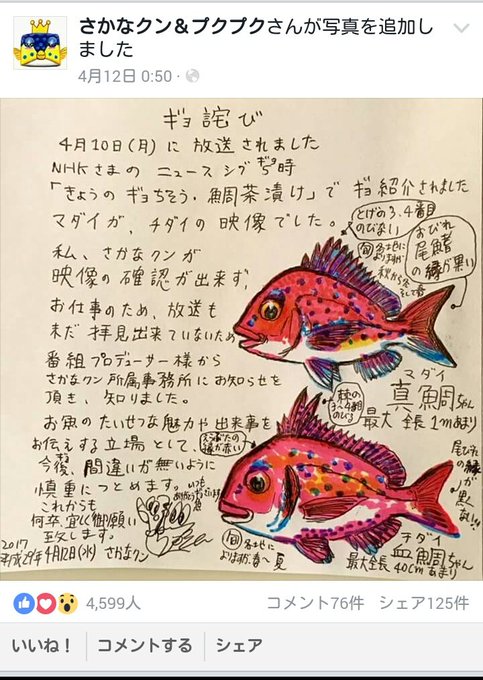 さかなクン＆プクプクさんが写真を追加し
ました
4月12日 0:50
ギョ詫び
4月10日(月)に放送されました
NHKさまのニュースシブ5時
ギョ
「きょうのギョちそう・鯛茶漬け」でギョ紹介されました
マダイが、チダイの映像でした。
私、さかなクンが
映像の確認が出来ず、
お仕事のため、放送も
未だ拝見出来ていないため
番組プロデューサー様から
さかなクン所属事務所にお知らせを
頂き、知りました。
お魚のたいせつな魅力や出来事を
お伝えする立場として、
今後、間違いが無いように
慎重につとめます。
いつも
ありがとうございます
これからも
何卒宜しく御願い
致します。
2017
平成29年4月12日(水) さかなクン
とげの3、4番目
のびない
旬
各地に
よりますが
秋から冬
そして春
おびれ
尾鰭
の縁が黒い
マダイ
真鯛ちゃん
最大全長1mあまり
棘の
3〜4番目
のびる
えらぶたの
縁が赤い
尾びれ
の縁
が
黒く
ない!!
チダイ
血鯛ちゃん
最大全長40cmあまり
旬
各地に
よりますが春〜夏
4,599人
コメント76件 シェア125件
いいね！
コメントする
シェア